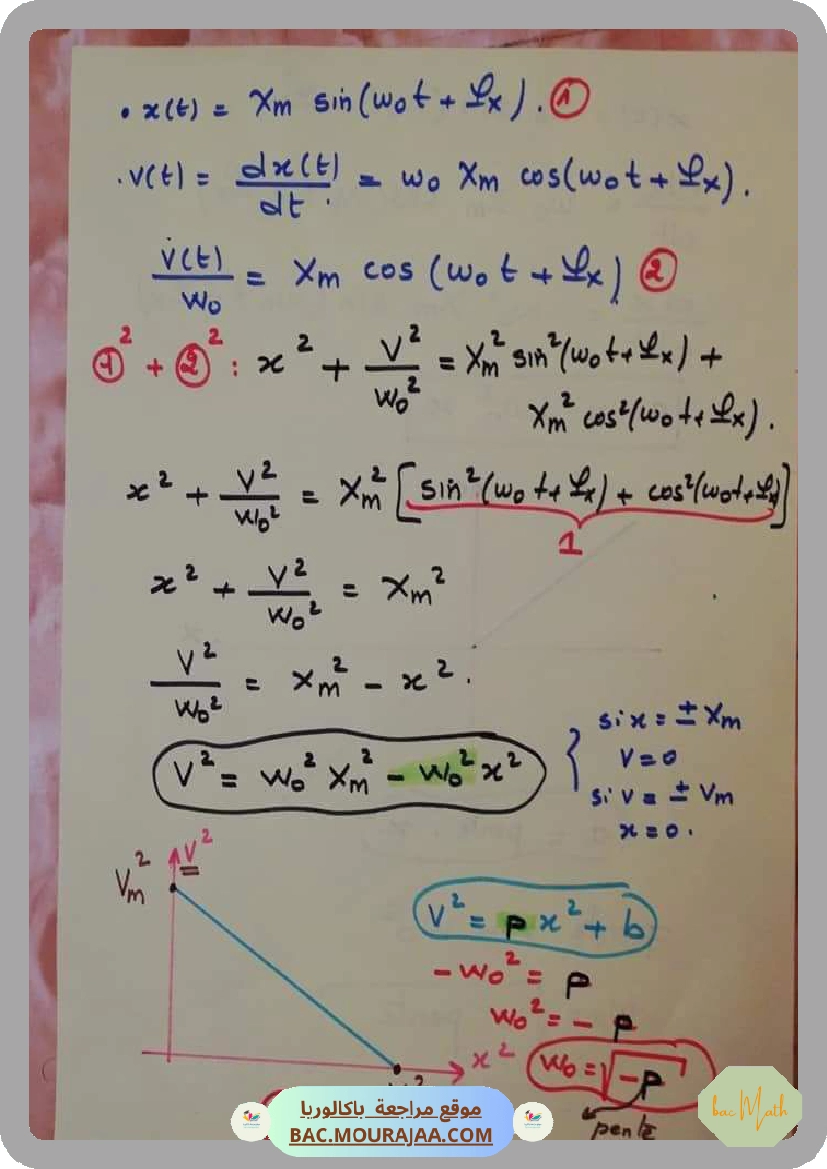 • x(t) = Xm sin(ω₀t + φx). ①
. V(t) = dx(t)/dt = ω₀ Xm cos(ω₀t + φx).
V(t)/ω₀ = Xm cos (ω₀t + φx) ②
①² + ②² : x² + V²/ω₀² = Xm² sin²(ω₀t + φx) +
Xm² cos²(ω₀t + φx).
x² + V²/ω₀² = Xm² [sin²(ω₀t + φx) + cos²(ω₀t + φx)]
1
x² + V²/ω₀² = Xm²
V²/ω₀² = Xm² - x².
V² = ω₀² Xm² - ω₀² x²
si x = ± Xm
V = 0
si v = ± Vm
x = 0.
Vm²
V²
x²
V² = p x² + b
-ω₀² = p
ω₀² = - p
ω₀ = √-p
pente
موقع مراجعة باكالوريا
BAC.MOURAJAA.COM
bac Math